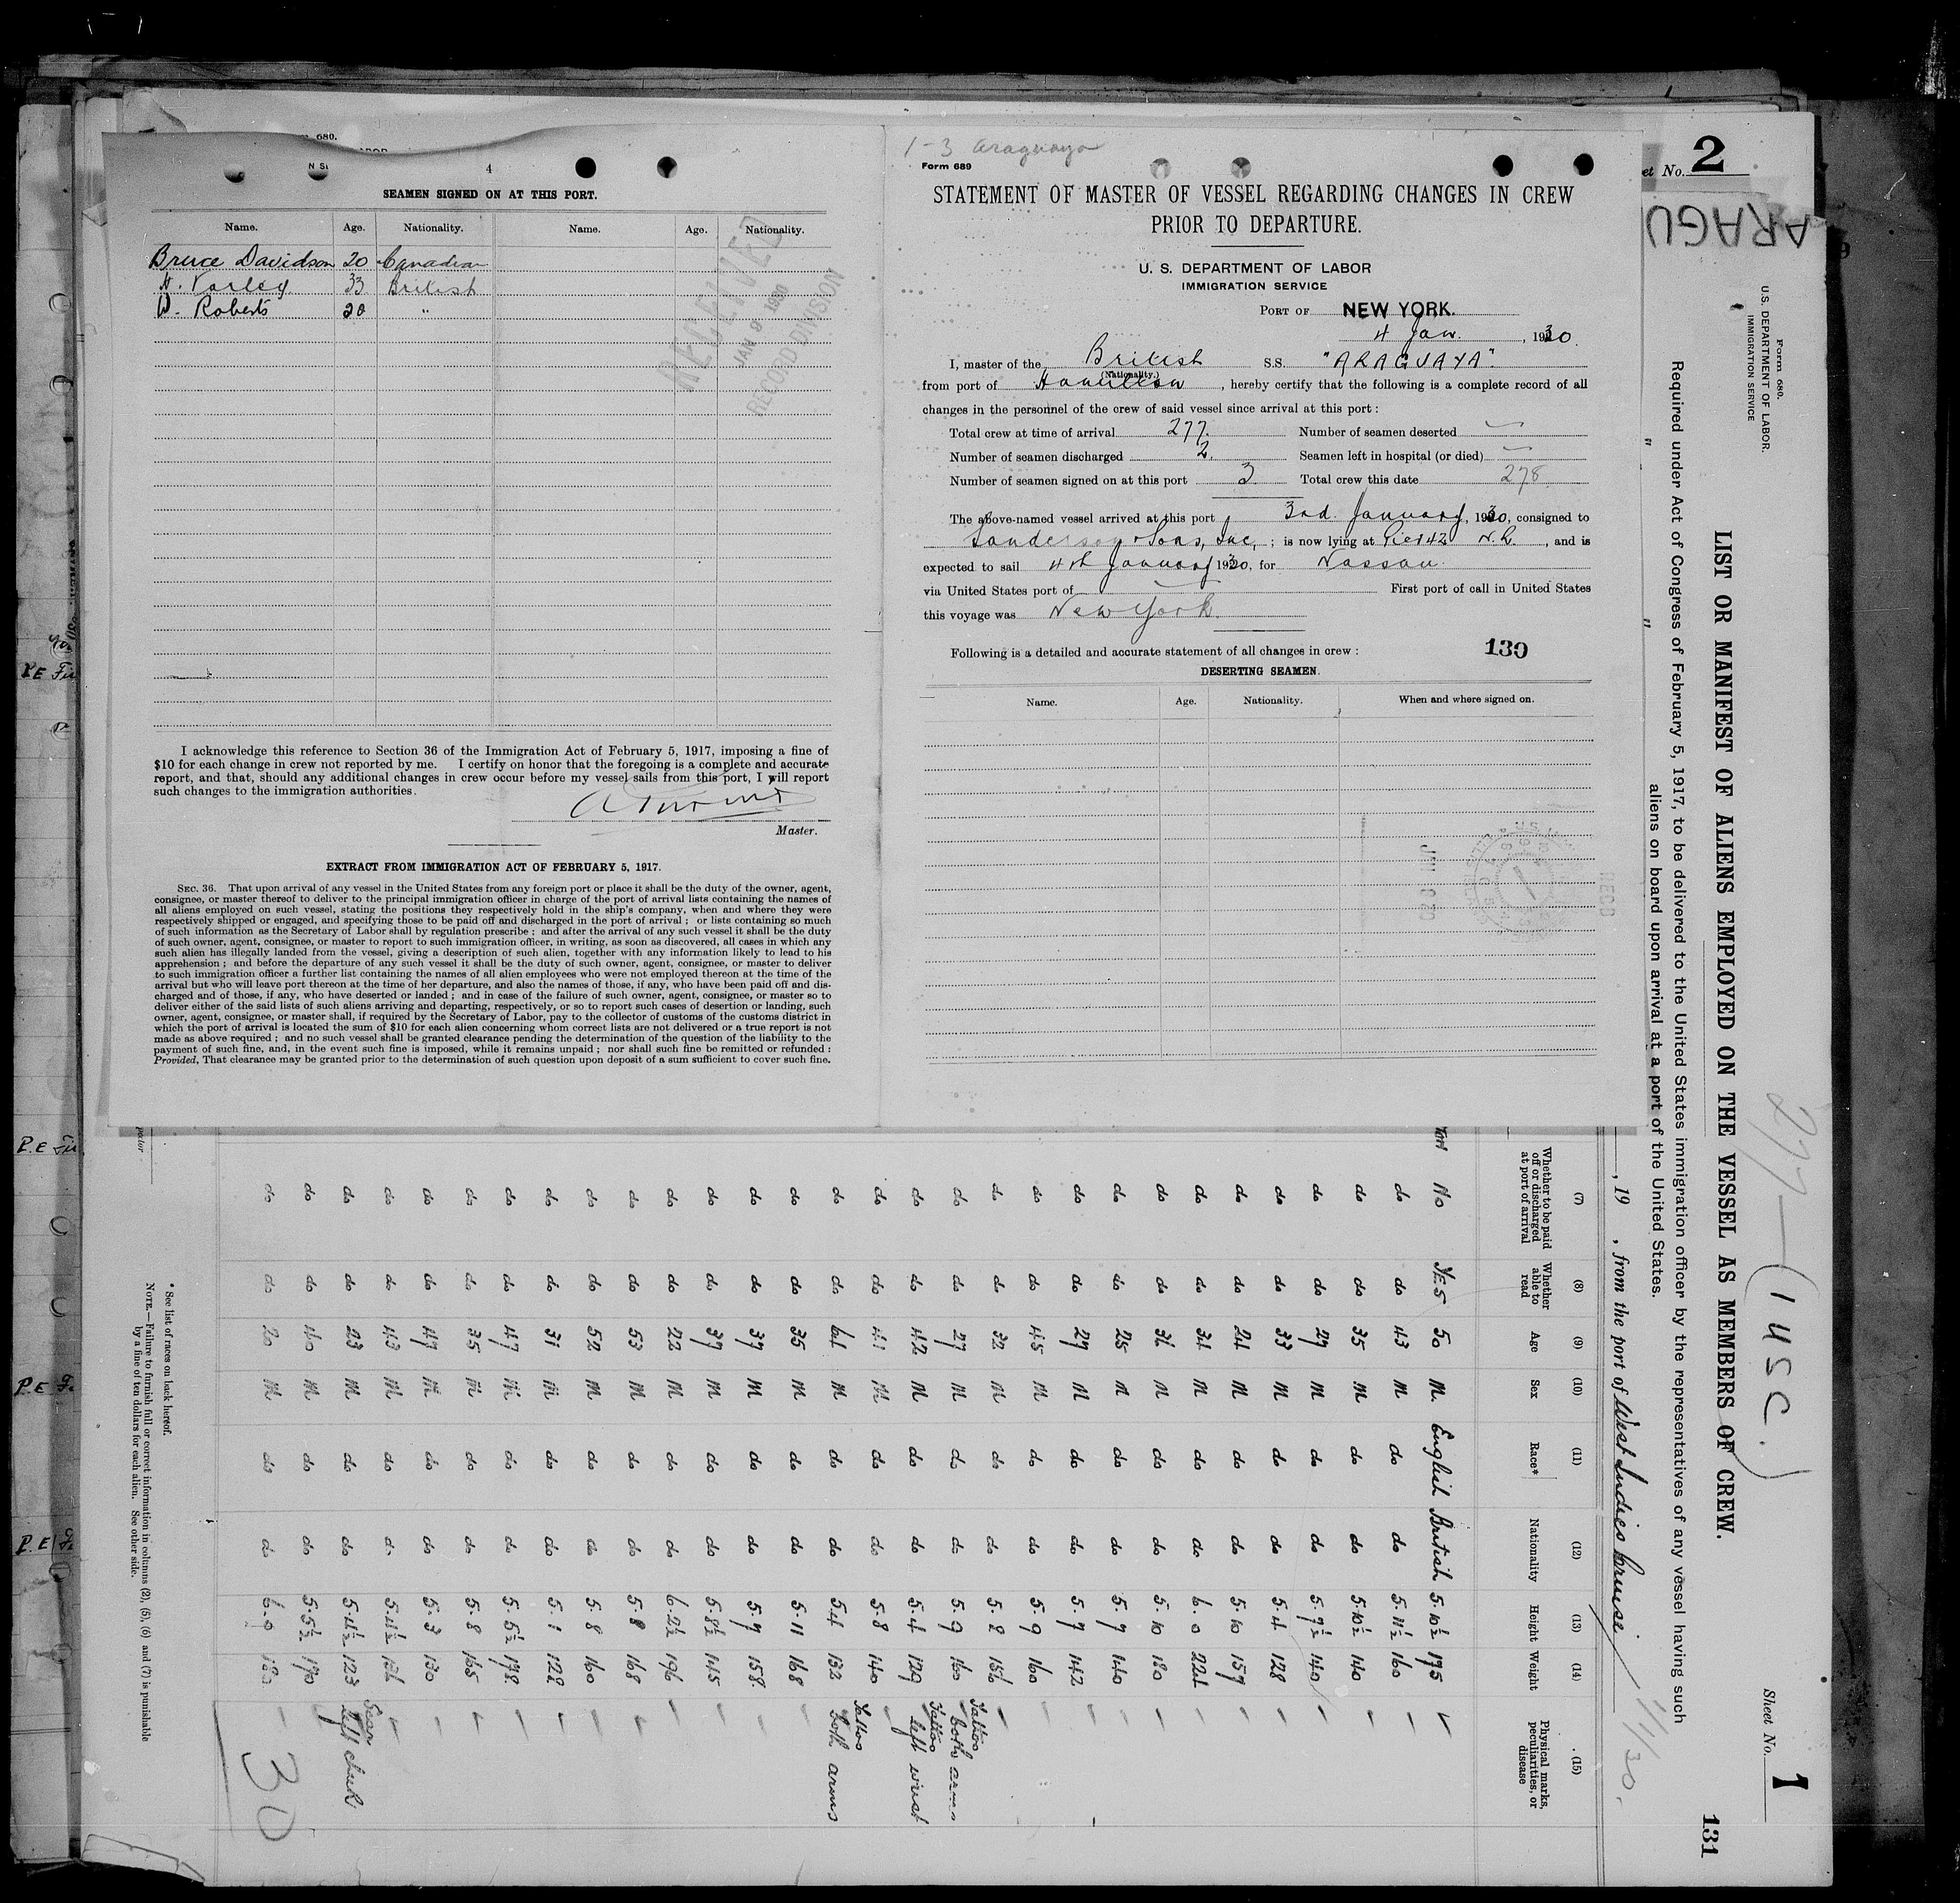 4
SEAMEN SIGNED ON AT THIS PORT.
Name. Age. Nationality. Name. Age. Nationality.
Bruce Davidson 20 Canadian
H. Varley 33 British
W. Roberts 20 "
RECEIVED
JAN 9 1930
RECORD DIVISION
I acknowledge this reference to Section 36 of the Immigration Act of February 5, 1917, imposing a fine of
$10 for each change in crew not reported by me. I certify on honor that the foregoing is a complete and accurate
report, and that, should any additional changes in crew occur before my vessel sails from this port, I will report
such changes to the immigration authorities.
Master.
EXTRACT FROM IMMIGRATION ACT OF FEBRUARY 5, 1917.
SEC. 36. That upon arrival of any vessel in the United States from any foreign port or place it shall be the duty of the owner, agent,
consignee, or master thereof to deliver to the principal immigration officer in charge of the port of arrival lists containing the names of
all aliens employed on such vessel, stating the positions they respectively hold in the ship's company, when and where they were
respectively shipped or engaged, and specifying those to be paid off and discharged in the port of arrival; or lists containing so much
of such information as the Secretary of Labor shall by regulation prescribe; and after the arrival of any such vessel it shall be the duty
of such owner, agent, consignee, or master to report to such immigration officer, in writing, as soon as discovered, all cases in which any
such alien has illegally landed from the vessel, giving a description of such alien, together with any information likely to lead to his
apprehension; and before the departure of any such vessel it shall be the duty of such owner, agent, consignee, or master to deliver
to such immigration officer a further list containing the names of all alien employees who were not employed thereon at the time of the
arrival but who will leave port thereon at the time of her departure, and also the names of those, if any, who have been paid off and dis-
charged and of those, if any, who have deserted or landed; and in case of the failure of such owner, agent, consignee, or master so to
deliver either of the said lists of such aliens arriving and departing, respectively, or so to report such cases of desertion or landing, such
owner, agent, consignee, or master shall, if required by the Secretary of Labor, pay to the collector of customs of the customs district in
which the port of arrival is located the sum of $10 for each alien concerning whom correct lists are not delivered or a true report is not
made as above required; and no such vessel shall be granted clearance pending the determination of the question of the liability to the
payment of such fine, and, in the event such fine is imposed, while it remains unpaid; nor shall such fine be remitted or refunded:
Provided, That clearance may be granted prior to the determination of such question upon deposit of a sum sufficient to cover such fine.
1-3 Araguaya
Form 689
STATEMENT OF MASTER OF VESSEL REGARDING CHANGES IN CREW
PRIOR TO DEPARTURE.
U. S. DEPARTMENT OF LABOR
IMMIGRATION SERVICE
PORT OF NEW YORK.
4 Jan., 1930.
I, master of the British S.S. "ARAGUAYA".
(Nationality.)
from port of Hamilton, hereby certify that the following is a complete record of all
changes in the personnel of the crew of said vessel since arrival at this port:
Total crew at time of arrival 277. Number of seamen deserted
Number of seamen discharged 2. Seamen left in hospital (or died)
Number of seamen signed on at this port 3 Total crew this date 278.
The above-named vessel arrived at this port 3rd. January, 1930, consigned to
Sanderson & Sons, Inc.; is now lying at Pier 42 N.R., and is
expected to sail 4th January 1930, for Nassau.
via United States port of First port of call in United States
this voyage was New York.
Following is a detailed and accurate statement of all changes in crew:
130
DESERTING SEAMEN.
Name. Age. Nationality. When and where signed on.
RECD
2
ARAGU
Form 680.
U.S. DEPARTMENT OF LABOR
IMMIGRATION SERVICE
277 — (1 USC.)
Sheet No. 1
131
LIST OR MANIFEST OF ALIENS EMPLOYED ON THE VESSEL AS MEMBERS OF CREW.
Required under Act of Congress of February 5, 1917, to be delivered to the United States immigration officer by the representatives of any vessel having such
aliens on board upon arrival at a port of the United States.
, 19 , from the port of West Indies Cruise 1/1/30.
(7) (8) (9) (10) (11) (12) (13) (14) (15)
Whether to be paid off or discharged at port of arrival Whether able to read Age Sex Race* Nationality Height Weight Physical marks, peculiarities, or disease
No YES 50 M. English British 5.10½ 195
do do 43 M do do 5.11½ 160
do do 35 M do do 5.10½ 140
do do 29 M do do 5.9½ 140
do do 33 M do do 5.4 128
do do 24 M do do 5.10 159
do do 34 M do do 6.0 224
do do 36 M do do 5.10 180
do do 25 M do do 5.9 140
do do 29 M do do 5.9 142
do do 45 M do do 5.9 160
do do 32 M do do 5.8 156
do do 27 M do do 5.9 160 Tattoo both arms
do do 42 M do do 5.4 129 Tattoo left wrist
do do 41 M do do 5.8 140
do do 64 M do do 5.4 132 Tattoo both arms
do do 35 M do do 5.11 168
do do 39 M do do 5.9 158
do do 39 M do do 5.8½ 145
do do 22 M do do 6.2½ 196
do do 53 M do do 5.8 168
do do 52 M do do 5.8 160
do do 31 M do do 5.1 128
do do 47 M do do 5.5½ 198
do do 35 M do do 5.8 165
do do 47 M do do 5.3 130
do do 43 M do do 5.4½ 136
do do 23 M do do 5.4½ 123 Scar left cheek
do do 40 M do do 5.5½ 190
do do 20 M do do 6.0 180
30
* See list of races on back hereof.
NOTE.—Failure to furnish full or correct information in columns (2), (5), (6) and (7) is punishable
by a fine of ten dollars for each alien. See other side.